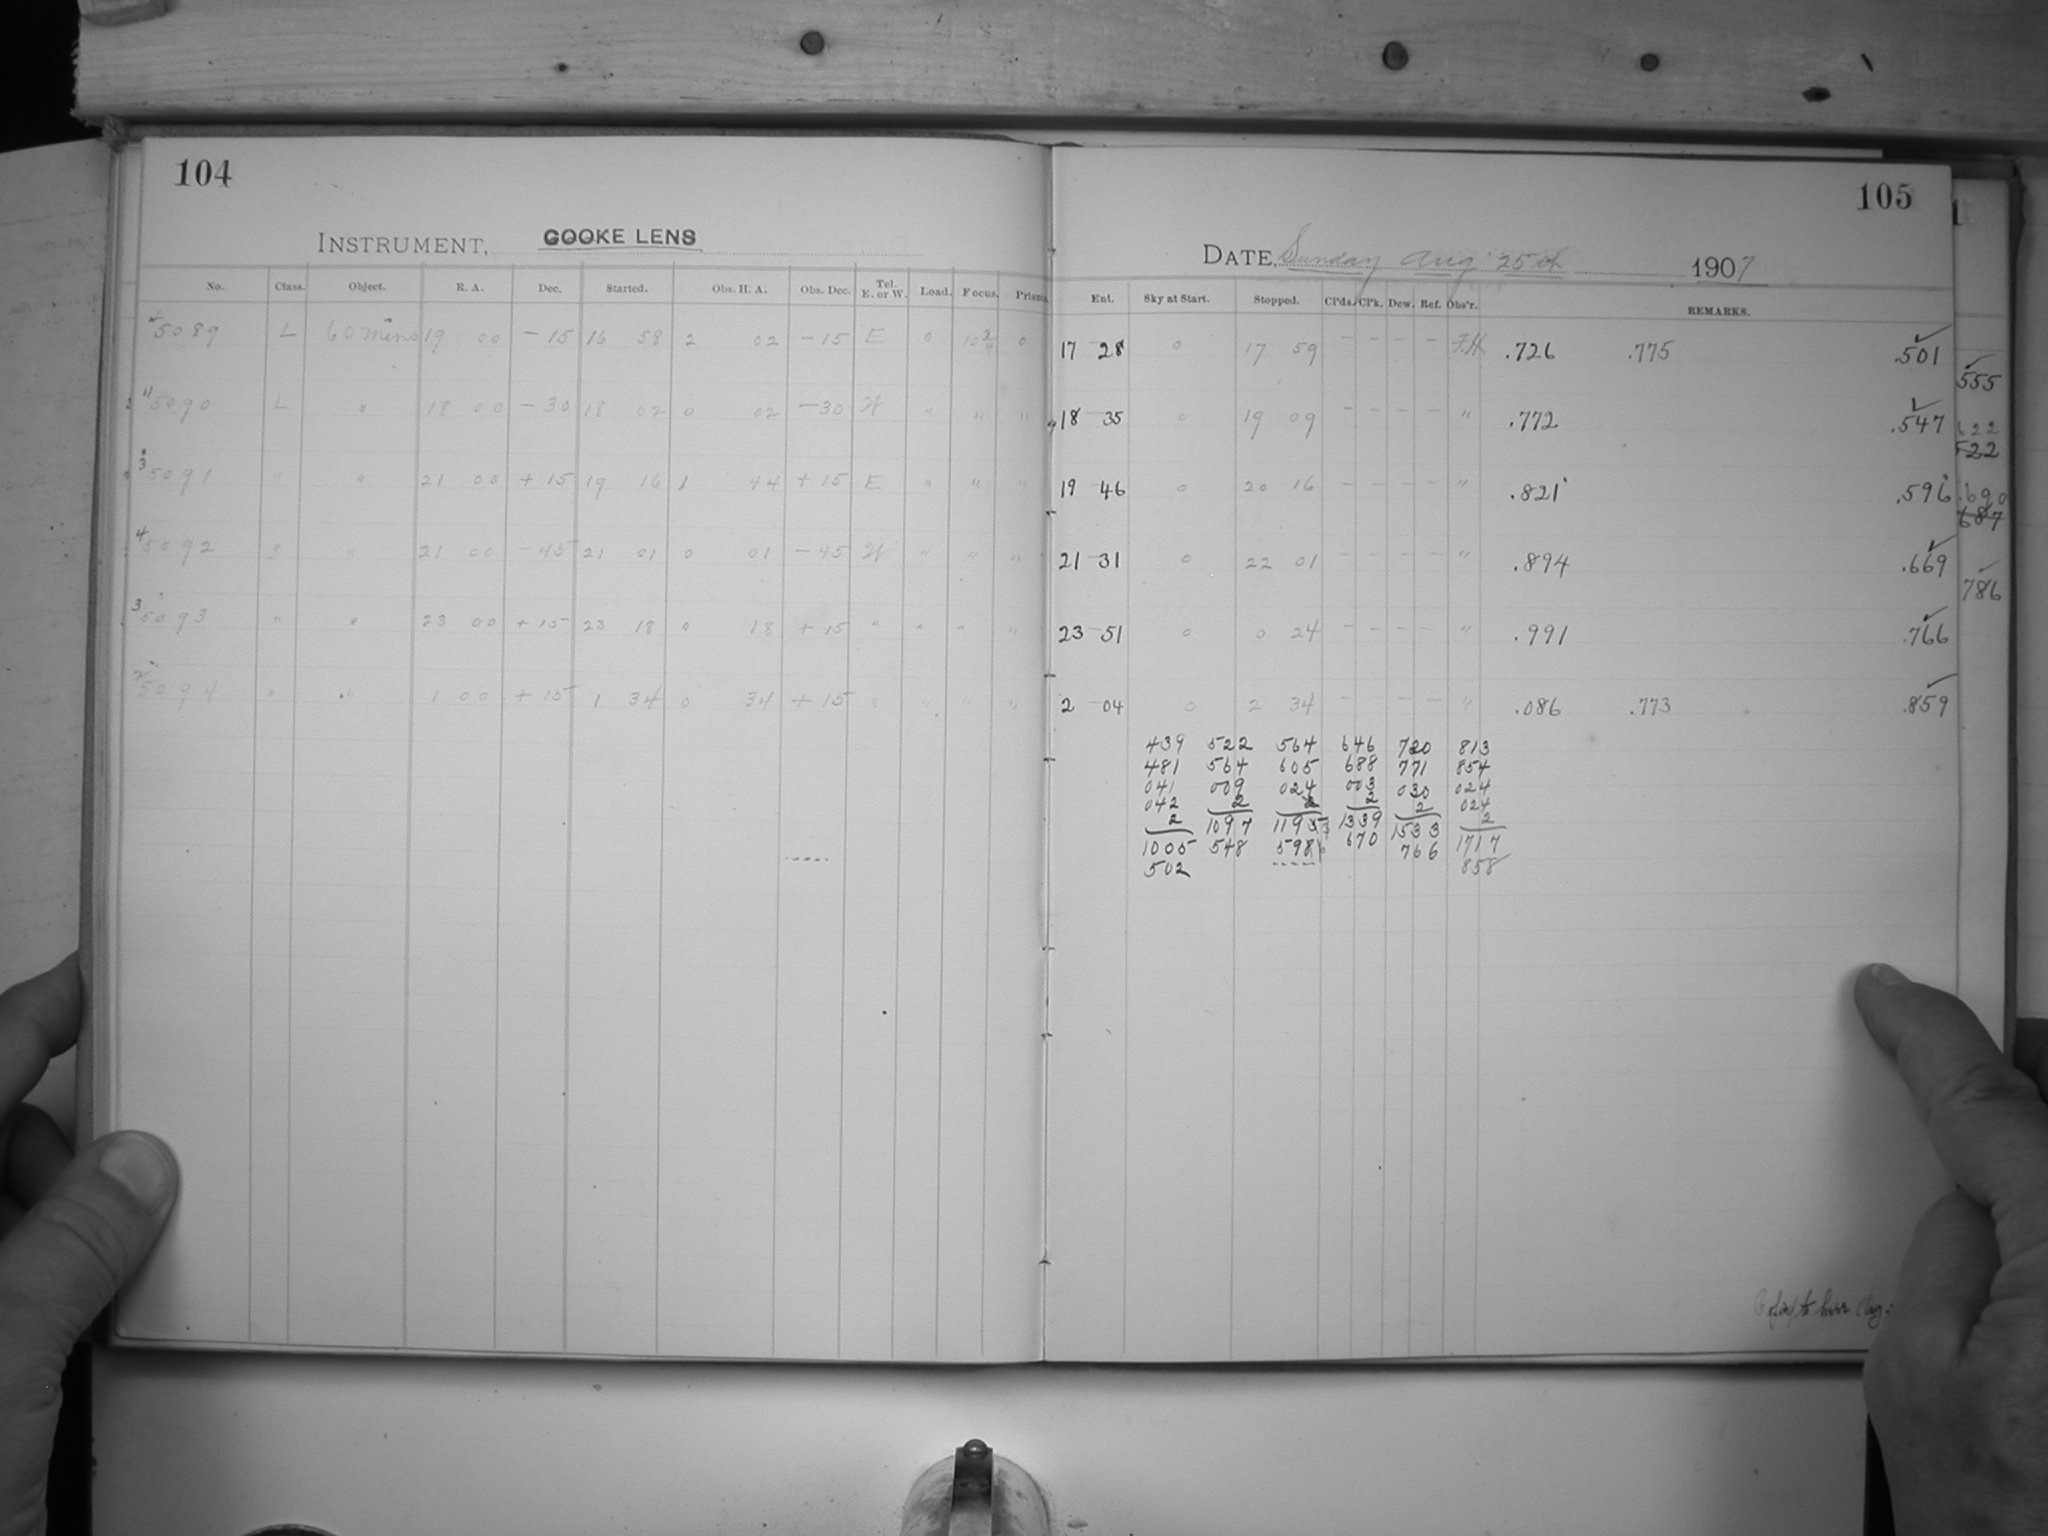 104
INSTRUMENT, COOKE LENS
No. Class. Object. R. A. Dec. Started. Obs. H. A. Obs. Dec. Tel. E. or W. Load. Focus. Prisms.
5089 L 60 mins 19 00 −15 16 58 2 02 −15 E 0 0
5090 L " 18 00 −30 18 02 0 02 −30 W " " "
5091 " " 21 00 +15 19 16 1 44 +15 E " " "
5092 " " 21 00 −45 21 01 0 01 −45 W " " "
5093 " " 23 00 +15 23 18 0 18 +15 " " " "
5094 " " 1 00 +15 1 34 0 34 +15 " " "
105
DATE, Sunday Aug 25th 1907
Ent. Sky at Start. Stopped. Cl'ds. Cl'k. Dew. Ref. Obs'r. REMARKS.
17 28 0 17 59 – – – – F.H. .726 .775 .501
18 35 0 19 09 – – – – " .772 .547
19 46 0 20 16 – – – – " .821 .596
21 31 0 22 01 – – – – " .894 .669
23 51 0 0 24 – – – – " .991 .766
2 04 0 2 34 – – – " .086 .773 .859
439 522 564 646 720 813
481 564 605 688 771 854
041 009 024 003 030 024
042 2 2 2 2 024
2 1097 1195 1339 1533 2
1005 548 598 670 766 1717
502 858
555
622
522
690
687
786